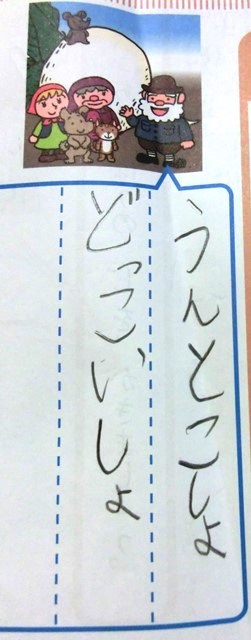 うんとこしょ
どっこいしょ